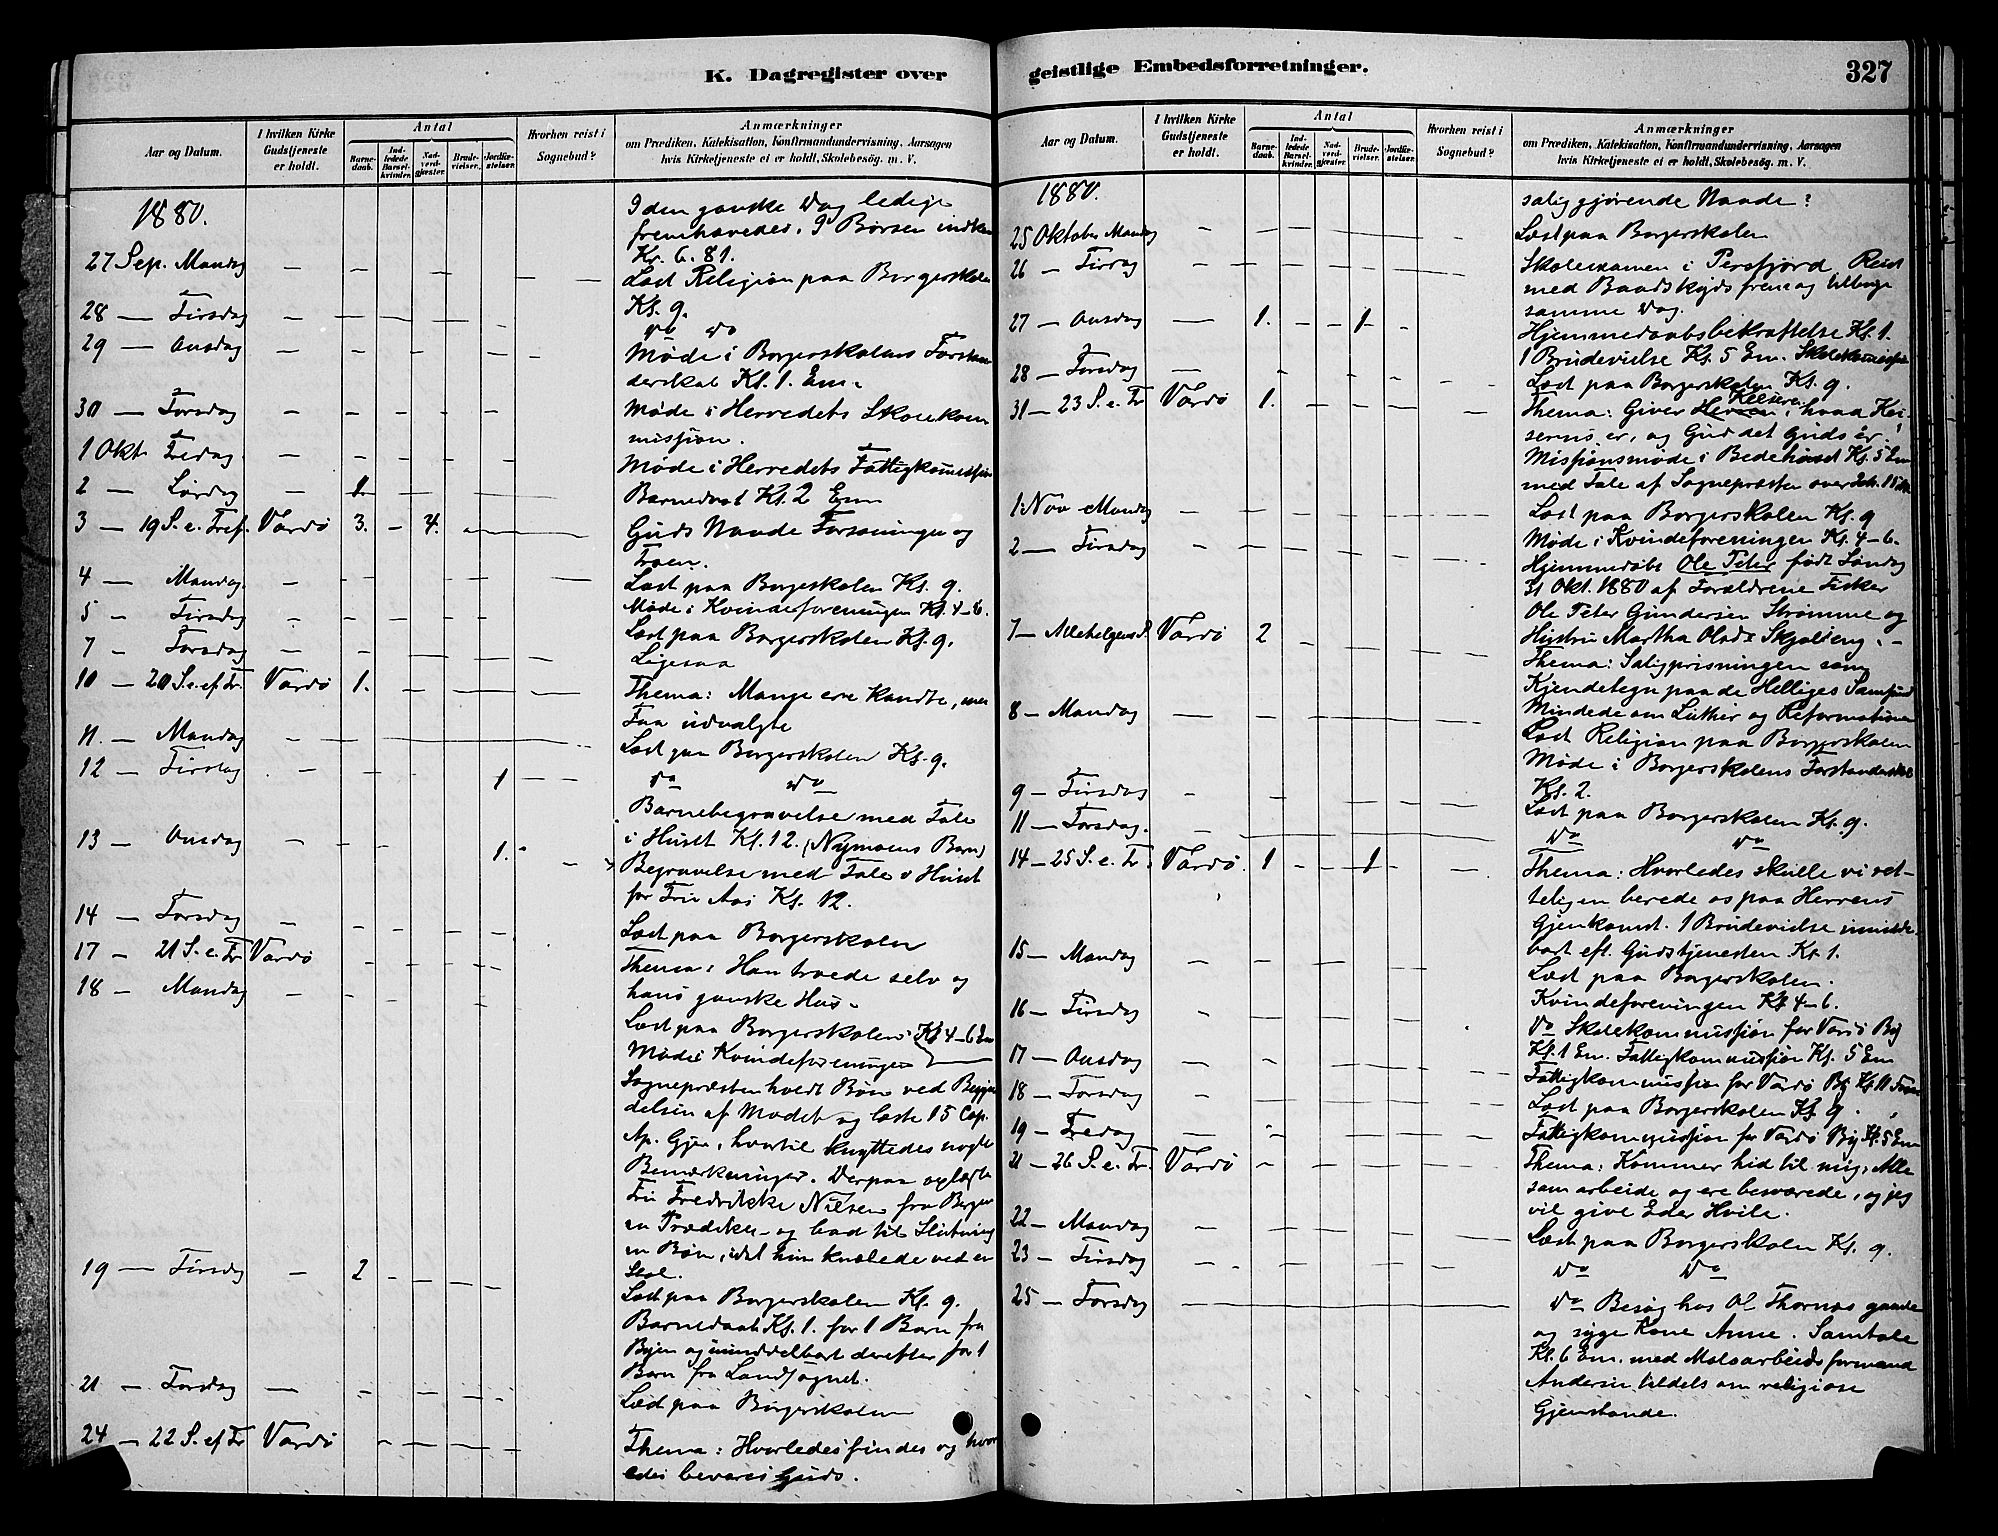 K. Dagregister over
Antal
Anmærkninger
Aar og Datum.
I hvilken Kirke Gudstjeneste er holdt.
Barne-daab.
Ind-ledede Barsel-kvinder.
Nad-verd-gjester.
Brude-vielser.
Jordfæ-stelser.
Hvorhen reist i Sognebud?
om Prædiken, Katekisation, Konfirmandundervisning, Aarsagen
hvis Kirketjeneste ei er holdt, Skolebesøg. m. V.
1880.
I den ganske Dag ledige
fremhævedes. I Bøssen
Kr. 6.81.
27 Sep. Mandag
Læst Religion paa Borgerskolen
Kl. 9.
28 — Tirsdag
Do Do
29 — Onsdag
Møde i Borgerskolens Forstan
derskab Kl. 1. Em.
30 — Torsdag
Møde i Herredets Skolekom
mission.
1 Okt. Fredag
Møde i Herredets Fattigkommission
2 — Lørdag — 1.
Barnedaab Kl. 2 Em
3 — 19 S. e. Tref. Vardø 3. — 4.
Guds Naade Forsoningen og
Troen.
4 — Mandag.
Læst paa Borgerskolen Kl. 9.
5 — Tirsdag
Møde i Kvindeforeningen Kl. 4-6.
Læst paa Borgerskolen Kl. 9.
7 — Torsdag
Ligesaa
10 — 20 S. ef. Tr. Vardø 1.
Thema: Mange ere kaldte, men
Faa udvalgte
11. — Mandag
Læst paa Borgerskolen Kl. 9.
12 — Tirsdag 1
Do Do
Barnebegravelse med Tale
i Huset Kl. 12. (Nymoens Barn)
13 — Onsdag 1.
Begravelse med Tale i Huset
for Fru Aas Kl. 12.
14 — Torsdag
Læst paa Borgerskolen
17 — 21 S. e. Tr. Vardø
Thema: Han troede selv og
hans ganske Hus.
18 — Mandag
Læst paa Borgerskolen. Kl 4-6 Em
Møde i Kvindeforeningen
Sognepræsten holdt Bøn ved Begyn
delsen af Mødet og læste 15 Cap.
Ap. Gjer., hvortil knyttedes nogle
Bemærkninger. Derpaa oplæste
Fru Fredrikke Nielsen fra Bergen
en Prædiken og bad til Slutning
en Bøn, idet hun knælede ved en
Stol.
19 — Tirsdag — 2
Læst paa Borgerskolen Kl. 9.
Barnedaab Kl. 1. for 1 Barn fra
Byen og umiddelbart derefter for 1
Barn fra Landsognet.
21 — Torsdag
Læst paa Borgerskolen
24 — 22 S. ef Tr Vardø
Thema: Hvorledes findes og hvor
ledes bevares Guds
geistlige Embedsforretninger.
327
Antal
Anmærkninger
Aar og Datum.
I hvilken Kirke Gudstjeneste er holdt.
Barne-daab.
Ind-ledede Barsel-kvinder.
Nad-verd-gjester.
Brude-vielser.
Jordfæ-stelser.
Hvorhen reist i Sognebud?
om Prædiken, Katekisation, Konfirmandundervisning, Aarsagen
hvis Kirketjeneste ei er holdt, Skolebesøg. m. V.
1880.
saliggjørende Naade?
25 Oktober Mandag
Læst paa Borgerskolen
26 — Tirsdag
Skoleexamen i Persfjord. Reist
med Baadskyds frem og tilbage
samme Dag.
27 — Onsdag — 1. — — 1
Hjemmedaabsbekræftelse Kl. 1.
1 Brudevielse Kl. 5 Em. Skolekommission
28 — Torsdag
Læst paa Borgerskolen Kl. 9.
31 — 23 S. e. Tr Vardø 1.
Thema: Giver Keiseren, hvad Kei-
serens er, og Gud det Guds er!
Missionsmøde i Bedehuset Kl. 5 Em
med Tale af Sognepræsten over
1. Nov Mandag
Læst paa Borgerskolen Kl. 9
2 — Tirsdag
Møde i Kvindeforeningen Kl. 4-6.
Hjemmedøbt Ole Peter født Søndag
31 Okt. 1880 af Forældrene Fisker
Ole Peter Gundersen Strømme og
Hustru Martha Olsdr Skjølseng. —
7 — Allehelgens S. Vardø 2
Thema: Saligprisningen som
Kjendetegn paa de Helliges Samfund
Mindede om Luther og Reformationen
8 — Mandag
Læst Religion paa Borgerskolen
Møde i Borgerskolens Forstanderskab
Kl. 2.
9 — Tirsdag
Læst paa Borgerskolen Kl. 9.
11 — Torsdag.
Do Do
14 — 25 S. e. Tr. Vardø. 1 — — 1
Thema: Hvorledes skulle vi ret-
teligen berede os paa Herrens
Gjenkomst. 1 Brudevielse umiddel-
bart eft. Gudstjenesten Kl. 1.
15 — Mandag
Læst paa Borgerskolen.
16 — Tirsdag
Kvindeforeningen Kl 4-6.
Do Skolekommission for Vardø By
Kl. 1 Em. Fattigkommission Kl. 5 Em
17 — Onsdag
Fattigkommission for Vardø By Kl. 11 Form
18 — Torsdag
Læst paa Borgerskolen Kl. 9.
19 — Fredag
Fattigkommission for Vardø By Kl. 5 Em
21 — 26 S. e. Tr. Vardø
Thema: Kommer hid til mig, Alle
som arbeide og ere besværede, og jeg
vil give Eder Hvile.
22 — Mandag
Læst paa Borgerskolen Kl. 9.
23 — Tirsdag
Do Do
25 — Torsdag
Do Besøg hos Ol Thornæs gamle
og syge Kone Anne. Samtale
Kl. 6 Em. med Moloarbeidsformand
Andersen tildels om religiøse
Gjenstande.